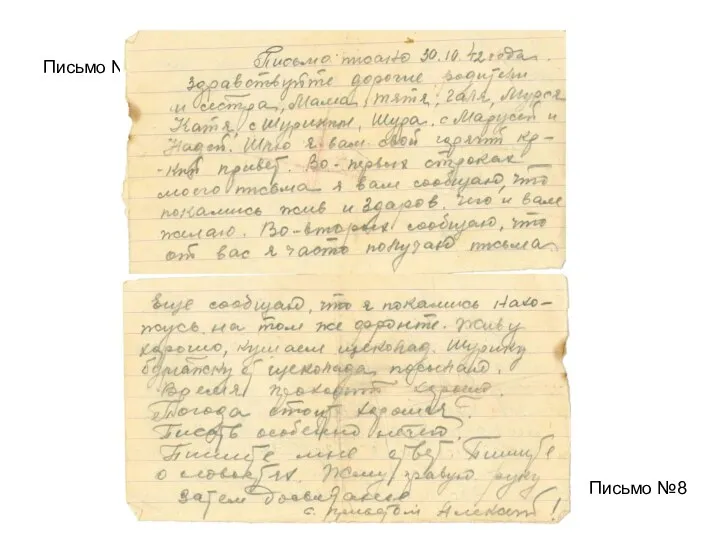 Письмо №
Письмо писано 30.10.42 года.
Здравствуйте дорогие родители
и сестра, Мама, тятя, Галя, Муся
Катя, с Шуриком, Шура. с Марусей и
Надей. Шлю я вам свой горячий кр-
-кий привет. Во-первых строках
моего письма я вам сообщаю, что
покамись жив и здаров. чего и вам
желаю. Во-вторых сообщаю, что
от вас я часто получаю письма
Еще сообщаю, что я покамись нахо-
жусь на том же фронте. Живу
хорошо, кушаем щеколад. Шурику
бумажку от щеколада посылаю.
Время проходит хорошо.
Погода стоит хорошая.
Писать особенно нечего.
Пишите мне ответ. Пишите
о новостях. Жму правую руку
Затем досвитания
с приветом Алексей!
Письмо №8